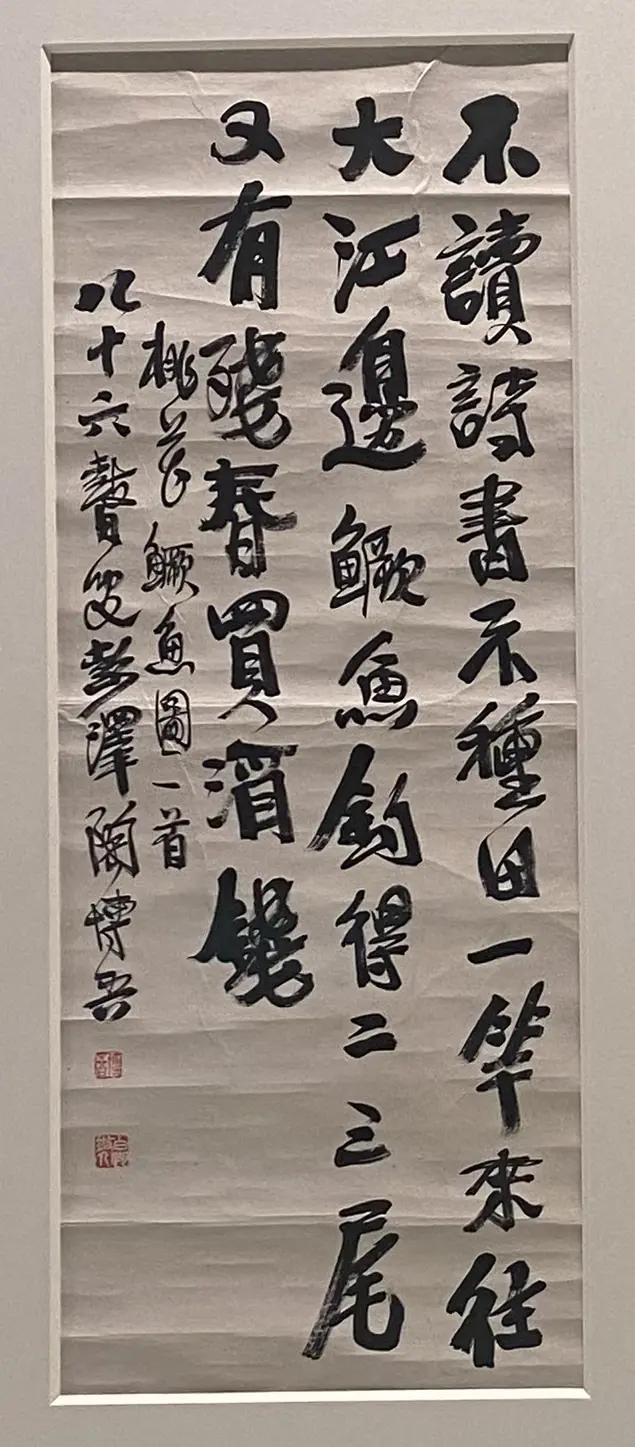 不讀詩書不種田一竿來往
大江邊鱖魚釣得二三尾
又有殘春買酒錢
桃花鱖魚圖一首
八十六瞽叟彭澤陶博吾